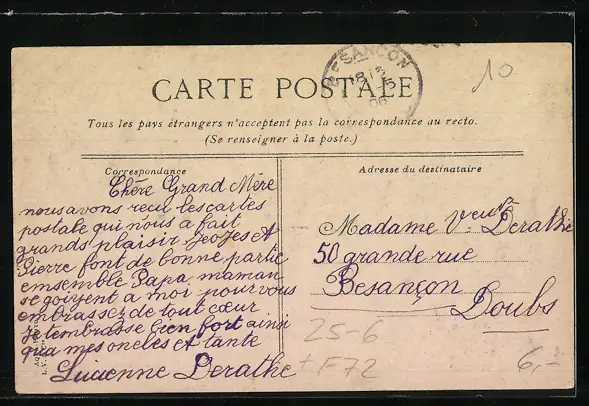 BESANÇON
CARTE POSTALE
10
Tous les pays étrangers n'acceptent pas la correspondance au recto.
(Se renseigner à la poste.)
Correspondance
Chère Grand Mère
nous avons recu les cartes
postale qui nous a fait
grands plaisir Jeojes et
Pierre font de bonne partie
emsemble Papa maman
se goivent a moi pour vous
embrassez de tout cœur
Je tembrasse bien fort ainsi
qua mes oncles et tante
Lucienne Derathe
Adresse du destinataire
Madame Veuve Derathe
50 grande rue
Besançon
Doubs
25-6
+F72
6,-